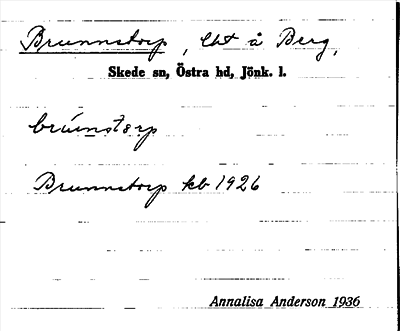 Brunnstorp, lht å Berg,
Skede sn, Östra hd, Jönk. l.
Brunnstorp kb 1926
Annalisa Anderson 1936